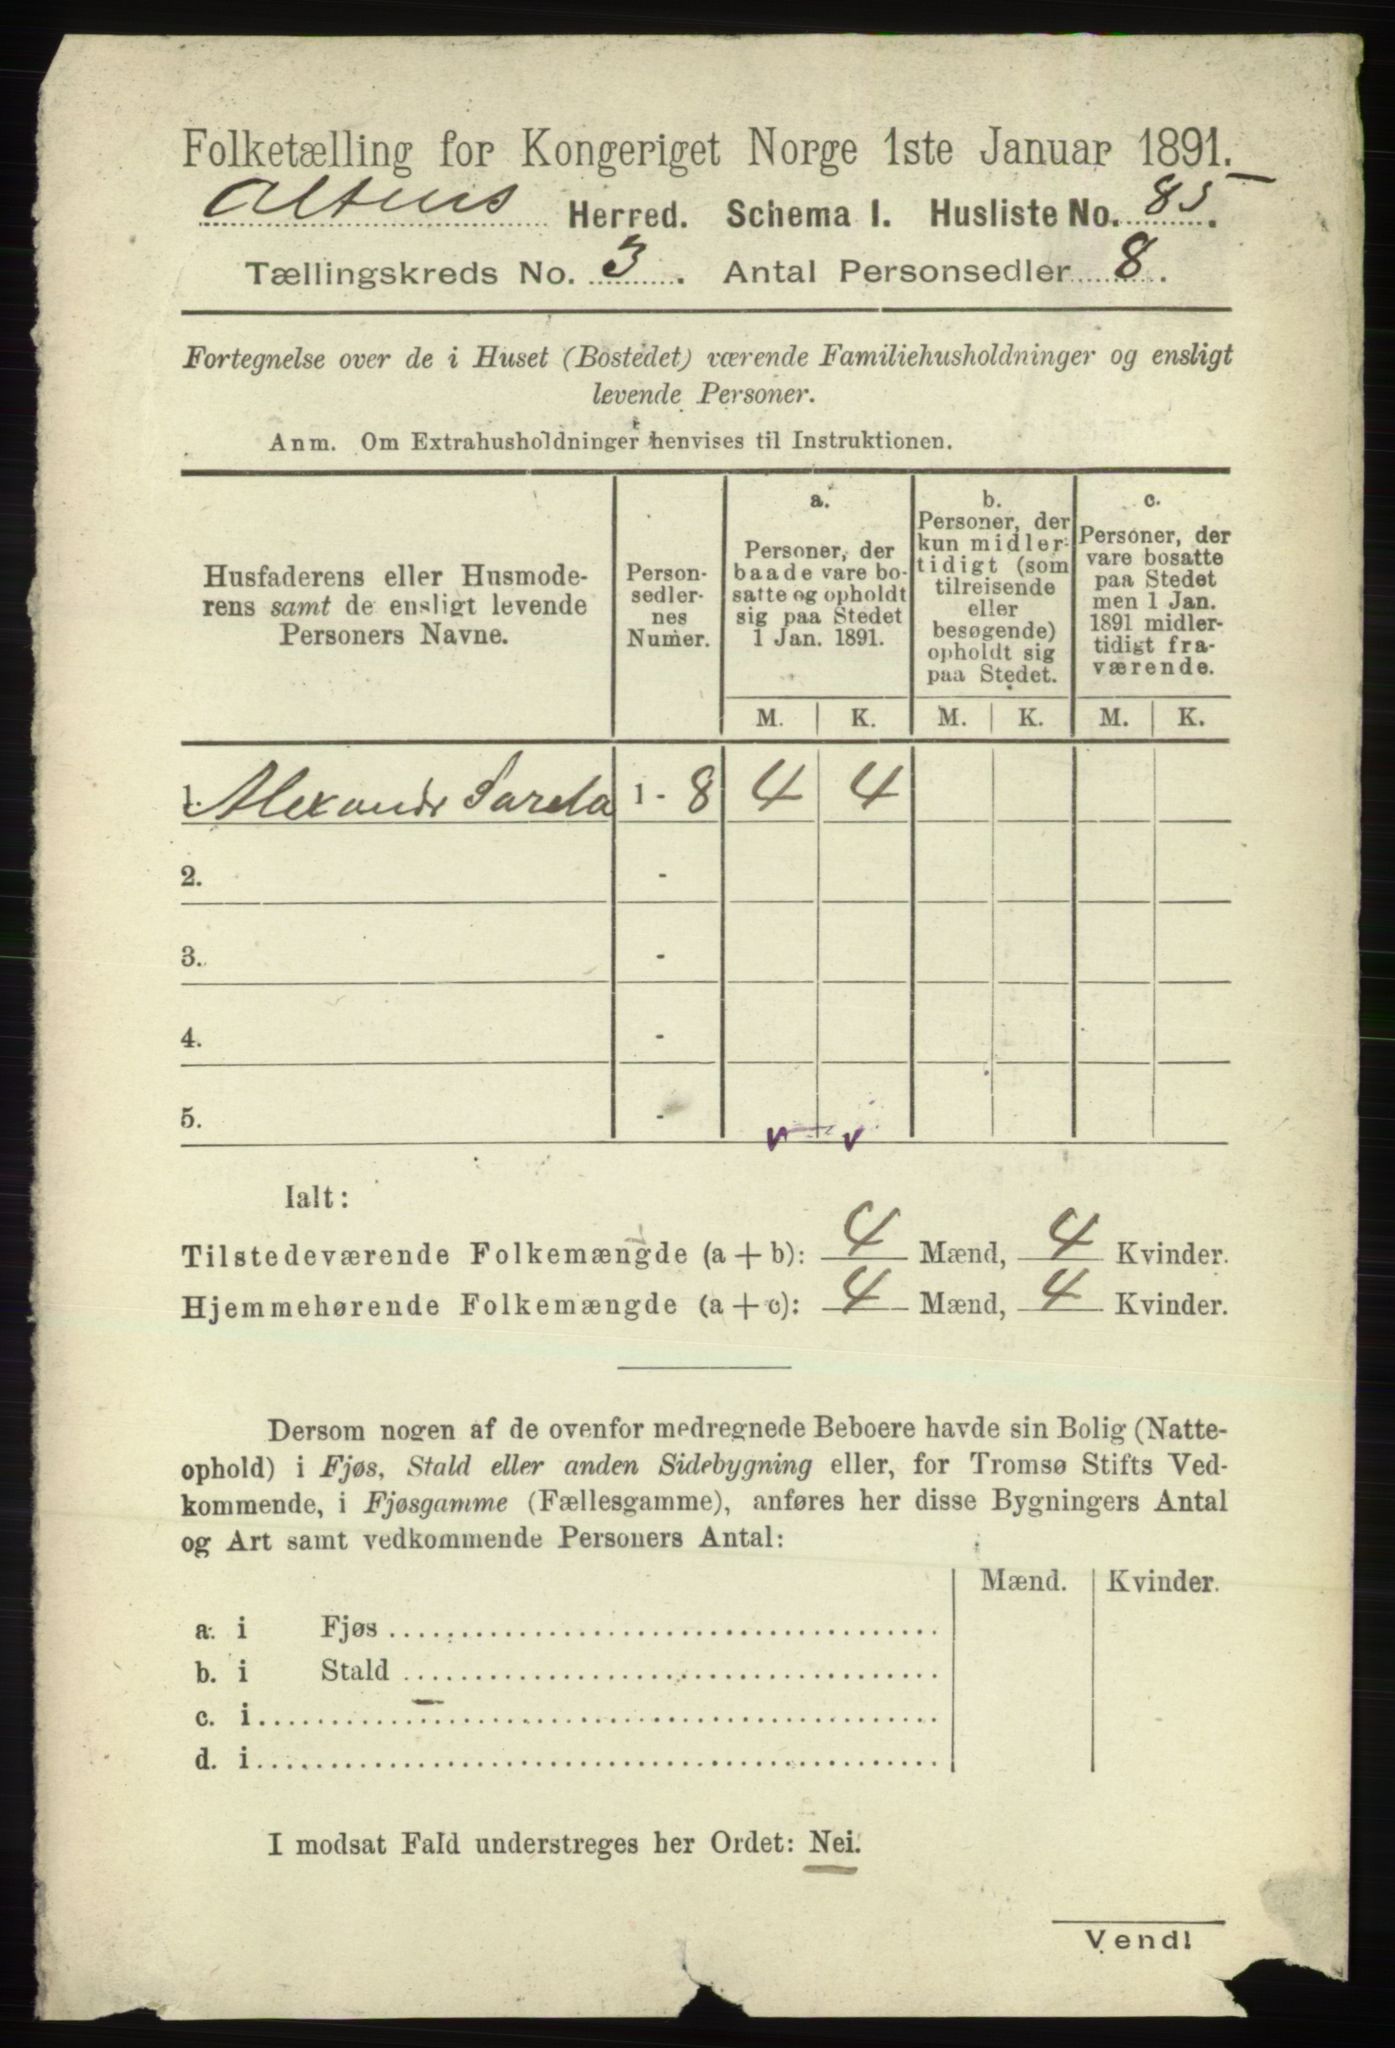 Folketælling for Kongeriget Norge 1ste Januar 1891.
Altens Herred. Schema I. Husliste No. 85.
Tællingskreds No. 3. Antal Personsedler 8.
Fortegnelse over de i Huset (Bostedet) værende Familiehusholdninger og ensligt
levende Personer.
Anm. Om Extrahusholdninger henvises til Instruktionen.
Husfaderens eller Husmode-
rens samt de ensligt levende
Personers Navne.
Person-
sedler-
nes
Numer.
a.
Personer, der
baade vare bo-
satte og opholdt
sig paa Stedet
1 Jan. 1891.
b.
Personer, der
kun midler-
tidigt (som
tilreisende
eller
besøgende)
opholdt sig
paa Stedet.
c.
Personer, der
vare bosatte
paa Stedet
men 1 Jan.
1891 midler-
tidigt fra-
værende.
M. K. M. K. M. K.
1. Alexander 1 - 8 4 4
2. -
3. -
4. -
5. -
Ialt:
Tilstedeværende Folkemængde (a + b): 4 Mænd, 4 Kvinder.
Hjemmehørende Folkemængde (a + c): 4 Mænd, 4 Kvinder.
Dersom nogen af de ovenfor medregnede Beboere havde sin Bolig (Natte-
ophold) i Fjøs, Stald eller anden Sidebygning eller, for Tromsø Stifts Ved-
kommende, i Fjøsgamme (Fællesgamme), anføres her disse Bygningers Antal
og Art samt vedkommende Personers Antal:
Mænd. Kvinder.
a. i Fjøs
b. i Stald
c. i
d. i
I modsat Fald understreges her Ordet: Nei.
Vend!